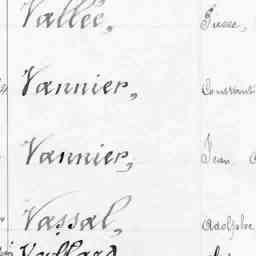 Vallée,
Vannier, Constant
Vannier, Jean,
Vassal, Adolphe
Vaillard